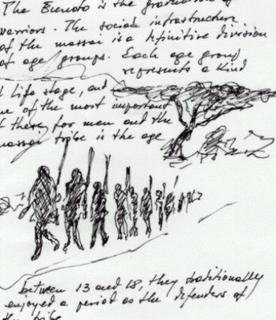 The Eunoto is the graduation of
warriors. The social infrastructure
of the massai is a definitive division
of age groups. Each age group
represents a kind
life stage, and
of the most important
these, for men and the
tribe is the age
between 13 and 18, they traditionally
enjoyed a period as the defenders of
the tribe